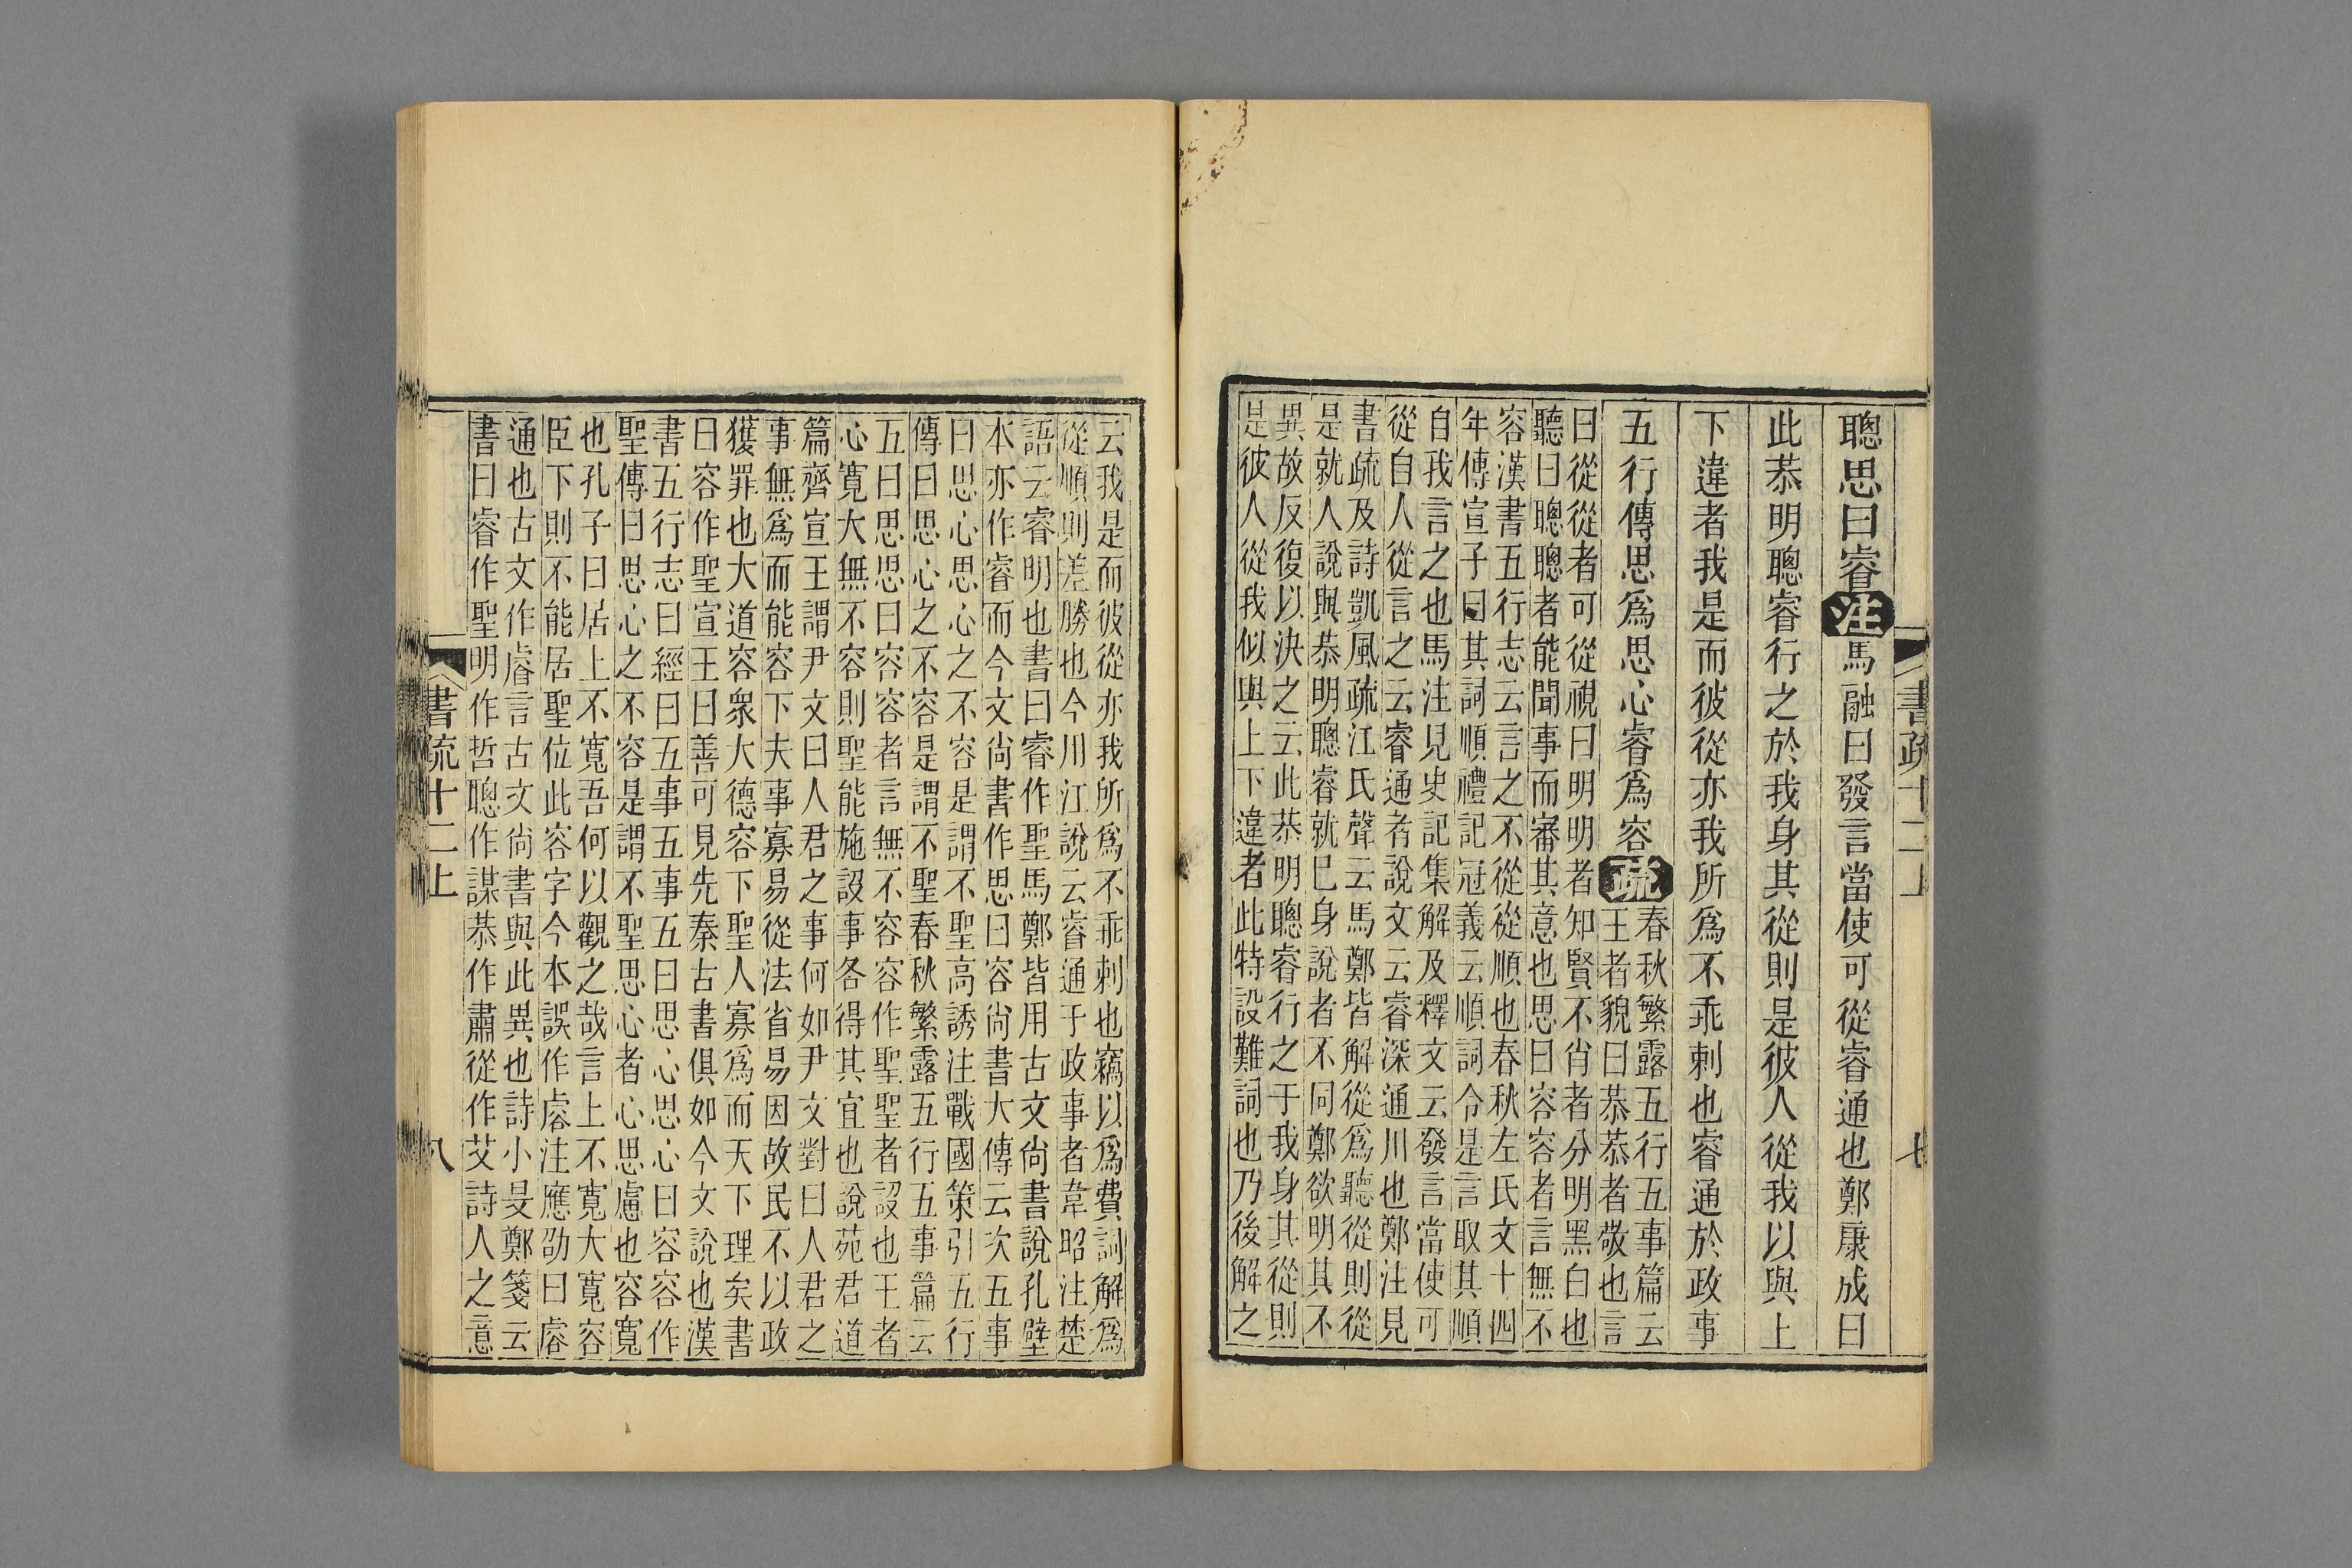 書疏十二上
七
聰思曰睿注馬融曰發言當使可從睿通也鄭康成曰
此恭明聰睿行之於我身其從則是彼人從我以與上
下違者我是而彼從亦我所爲不乖剌也睿通於政事
五行傳思爲思心睿爲容疏春秋繁露五行五事篇云
王者貌曰恭恭者敬也言
曰從從者可從視曰明明者知賢不肖者分明黑白也
聽曰聰聰者能聞事而審其意也思曰容容者言無不
容漢書五行志云言之不從從順也春秋左氏文十四
年傳宣子曰其詞順禮記冠義云順詞令是言取其順
自我言之也馬注見史記集解及釋文云發言當使可
從自人從言之云睿通者說文云睿深通川也鄭注見
書疏及詩凱風疏江氏聲云馬鄭皆解從爲聽從則從
是就人說與恭明聰睿就巳身說者不同鄭欲明其不
異故反復以決之云此恭明聰睿行之于我身其從則
是彼人從我似與上下違者此特設難詞也乃後解之
云我是而彼從亦我所爲不乖剌也竊以爲費詞解爲
從順則差勝也今川江說云睿通于政事者韋昭注楚
語云睿明也書曰睿作聖馬鄭皆用古文尙書說孔壁
本亦作睿而今文尙書作思曰容尙書大傳云次五事
曰思心思心之不容是謂不聖高誘注戰國策引五行
傳曰思心之不容是謂不聖春秋繁露五行五事篇云
五曰思思曰容容者言無不容容作聖聖者設也王者
心寬大無不容則聖能施設事各得其宜也說苑君道
篇齊宣王謂尹文曰人君之事何如尹文對曰人君之
事無爲而能容下夫事寡易從法省易因故民不以政
獲罪也大道容衆大德容下聖人寡爲而天下理矣書
曰容作聖宣王曰善可見先秦古書俱如今文說也漢
書五行志曰經曰五事五事五曰思心思心曰容容作
聖傳曰思心之不容是謂不聖思心者心思慮也容寬
也孔子曰居上不寬吾何以觀之哉言上不寬大寬容
臣下則不能居聖位此容字今本誤作睿注應劭曰睿
通也古文作睿言古文尙書與此異也詩小旻鄭箋云
書曰睿作聖明作哲聰作謀恭作肅從作艾詩人之意
書疏十二上
八